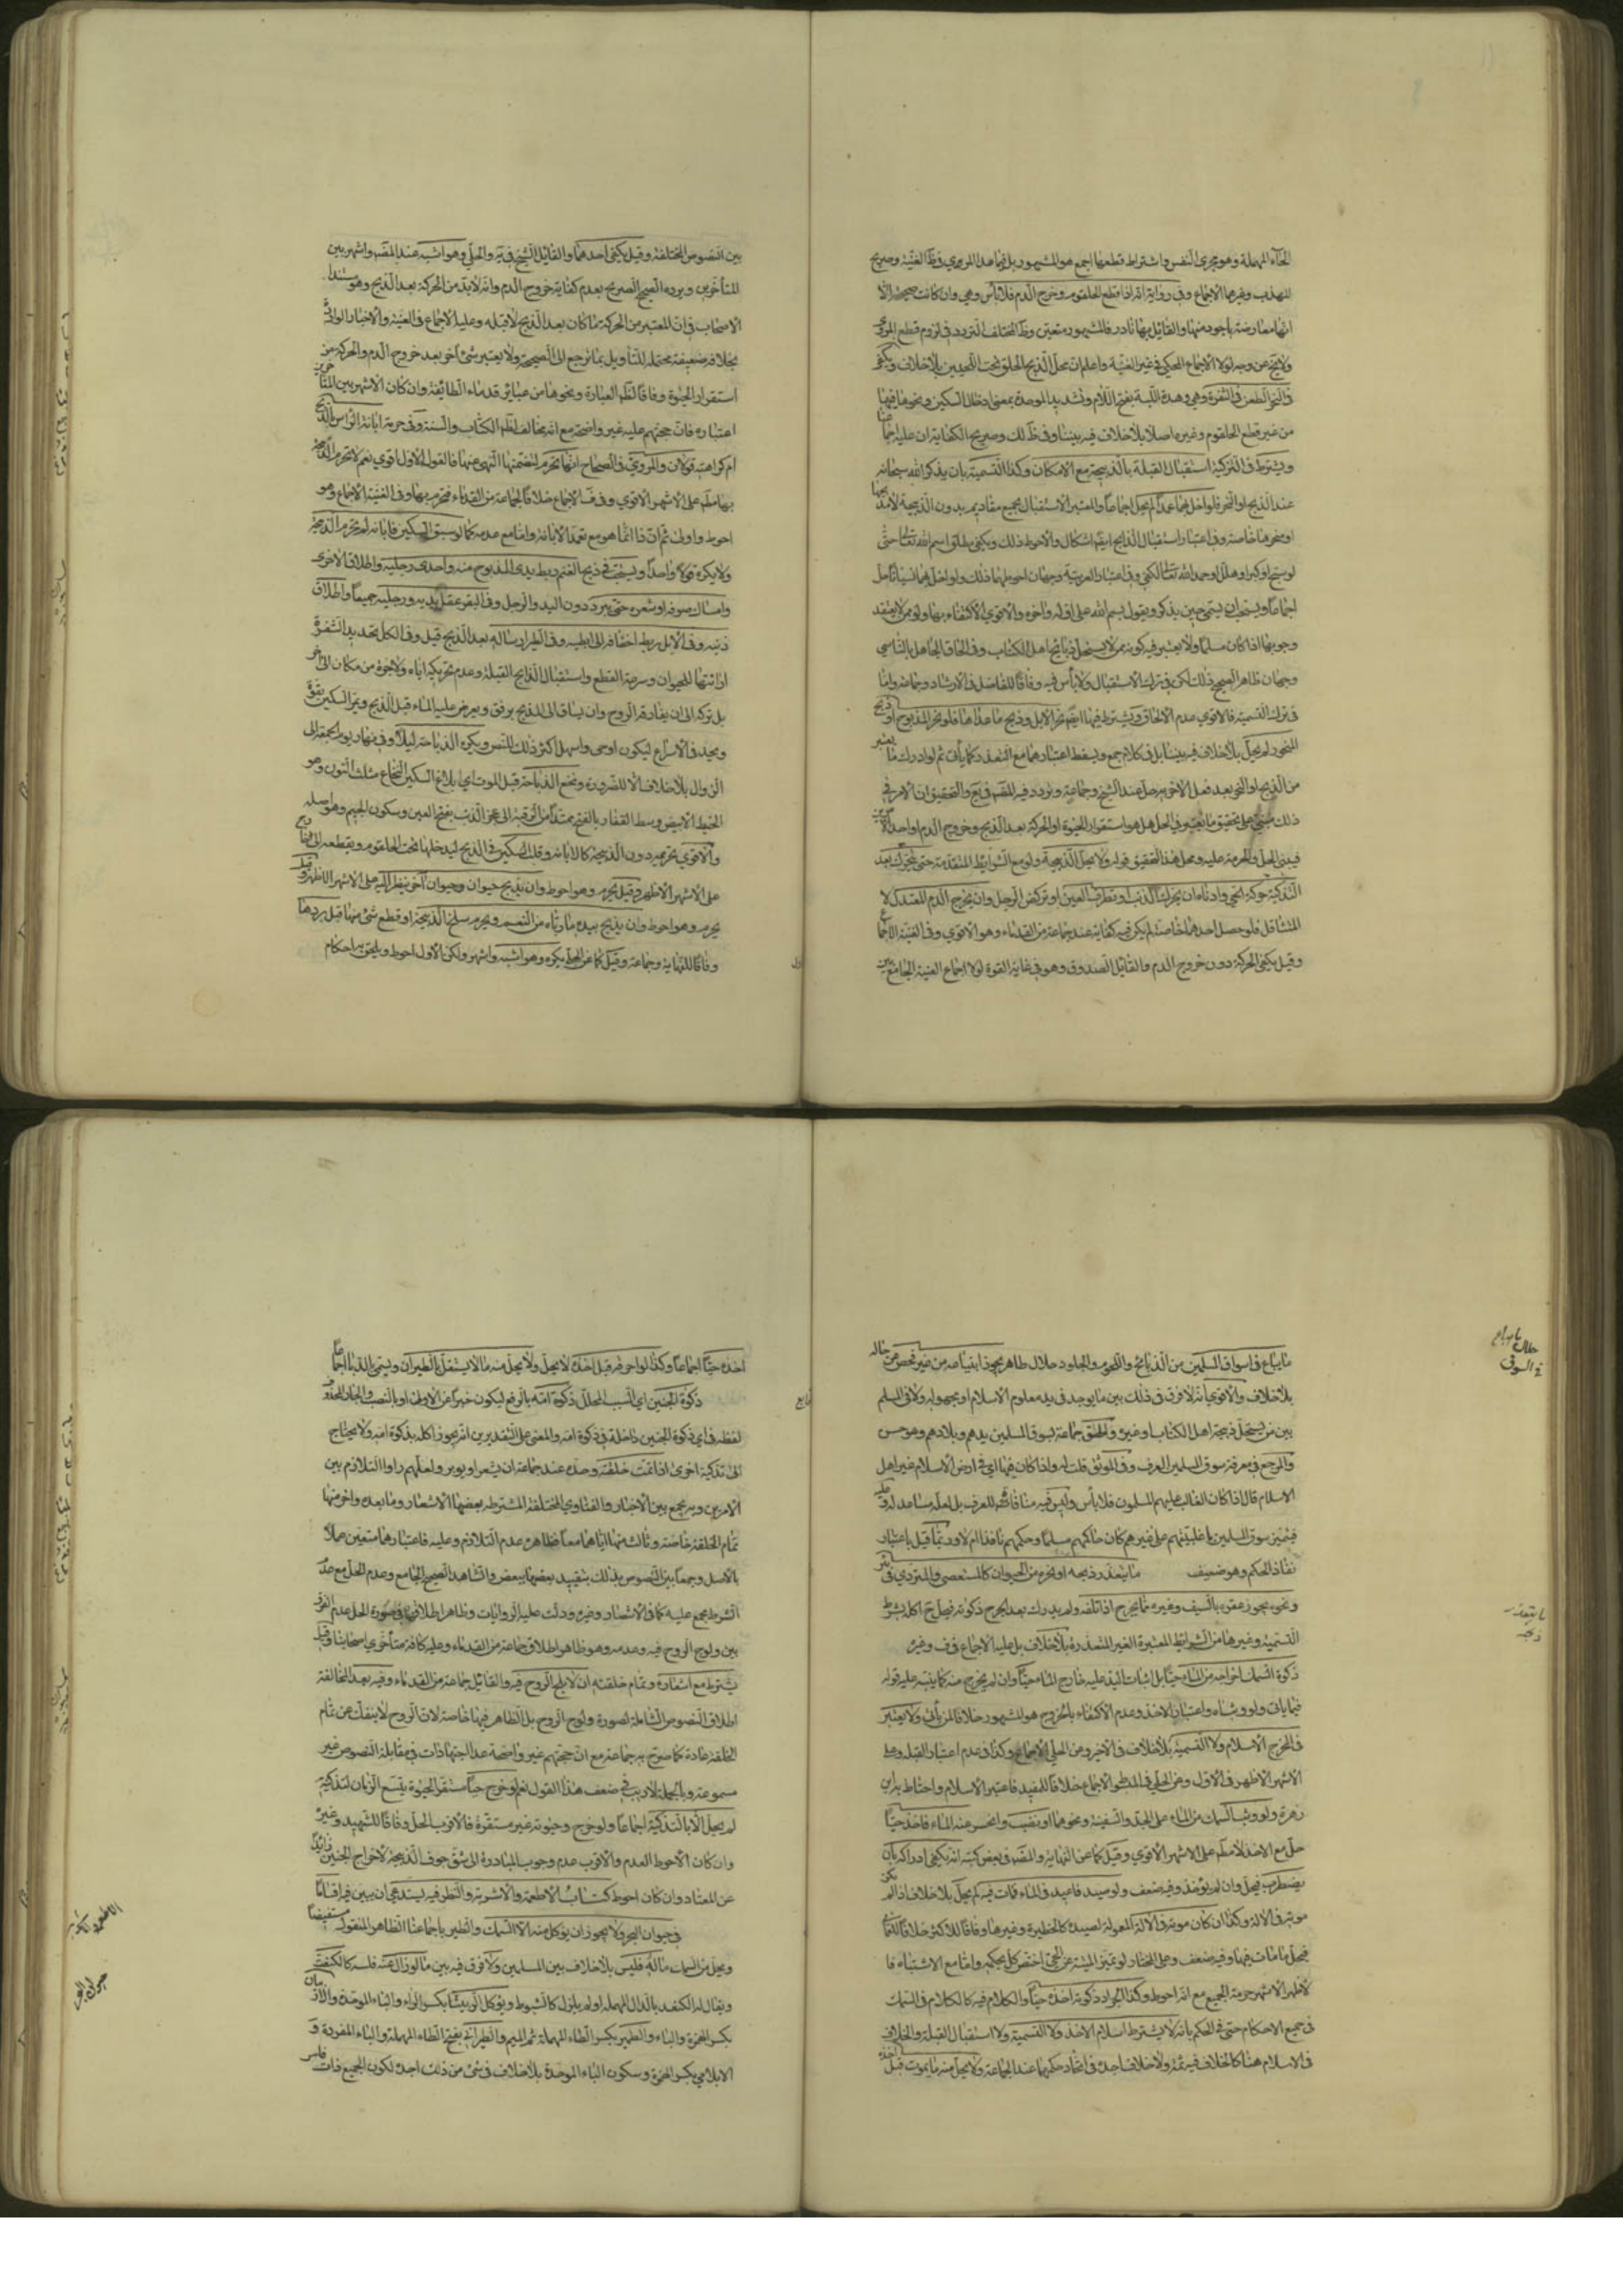 الحاء المهملة وهو مجرى النفس واشتراط قطعها اجمع هو المشهور بل
المهذب وغيرهما الاجماع وفي رواية انه اذا قطع الحلقوم وخرج الدم فلا بأس وهي وان كانت صحيحة الا
انها معارضة باجود منها والقائل بها نادر فالمشهور متعين وظ المختلف التردد في لزوم قطع المرى
ولا يخ عن وجه لولا الاجماع المحكي في غير الغنية واعلم ان محل الذبح الحلق تحت اللحيين بلا خلاف ويكفي
في النحر الطعن في الثغرة وهي وهدة اللبة بفتح اللام وتشديد الموحدة بمعنى ادخال السكين ونحوها فيها
من غير قطع الحلقوم وغيره اصلا بلا خلاف فيه بيننا وفي ظ لك وصريح الكفاية ان عليه اجماعنا
ويشترط في التذكية استقبال القبلة بالذبيحة مع الامكان وكذا التسمية بان يذكر الله سبحانه
عند الذبح او النحر فلو اخل بهما عمدا لم يحل اجماعا والمعتبر الاستقبال بجميع مقاديم بدون الذبيحة لا مذبحها
او منحرها خاصة وفي اعتبار استقبال الذابح ايضا اشكال والاحوط ذلك ويكفي مطلق اسم الله تعالى حتى
لو سبح او كبر او هلل او حمد الله تعالى لكفى وفي اعتبار العربية وجهان احوطهما ذلك ولو اخل بهما نسيانا حل
اجماعا ويستحب ان يسمي حين يذكر ويقول بسم الله على اوله واخره والاقوى الاكتفاء بها ولو ممن لا يعتقد
وجوبها اذا كان مسلما ولا يعتبر فيه كونه ممن لا يستحل ذبائح اهل الكتاب وفي الحاق الجاهل بالناسي
وجهان ظاهر الصحيح ذلك لكن في ترك الاستقبال ولا بأس فيه وفاقا للفاضل في الارشاد وجماعة واما
في ترك التسمية فالاقوى عدم الالحاق ويشترط فيهما ايضا نحر الابل وذبح ما عداها فلو نحر المذبوح او ذبح
المنحور لم يحل بلا خلاف فيه بيننا بل في كلام جمع ويسقط اعتبارهما مع التعذر كما يأتي ثم لو ادرك ما يعتبر
من الذبح او النحر بعد فعل الاخر به حل عند الشيخ وجماعة وتردد فيه المصنف في يع والتحقيق ان الامر في
ذلك مبني على تحقيق ما يعتبر في الحل هل هو استقرار الحيوة او الحركة بعد الذبح وخروج الدم او احد الامرين
فيبنى الحل والحرمة عليه ومحل هذا التحقيق قوله ولا يحل الذبيحة ولو مع الشرايط المتقدمة حتى يتحرك بعد
التذكية حركة الحي وادناه ان يحرك الذنب او تطرف العين او تركض الرجل وان يخرج الدم المعتدل لا
المتثاقل فلو حصل احدهما خاصة لم يكن فيه كفاية عند جماعة من القدماء وهو الاقوى وفي الغنية الاجماع
وقيل يكفي الحركة دون خروج الدم والقائل الصدوق وهو في غاية القوة لولا اجماع الغنية الجامع بين
بين النصوص المختلفة وقيل يكفي احدهما والقائل الشيخ في ية والحلي وهو اشبه عند المصنف واشهر بين
المتأخرين ويرده الصحيح الصريح بعدم كفاية خروج الدم وانه لابد من الحركة بعد الذبح وهو مستند
الاصحاب في ان المعتبر من الحركة ما كان بعد الذبح لا قبله وعليه الاجماع في الغنية والاخبار الواردة
بخلافه ضعيفة محتملة للتأويل بما ترجع الى الصحيحة ولا يعتبر شئ اخر بعد خروج الدم والحركة من
استقرار الحيوة وفاقا لظ العبارة ونحوها من عبائر قدماء الطائفة وان كان الاشهر بين المتأخرين
اعتباره فان حجتهم عليه غير واضحة مع انه مخالف لظ الكتاب والسنة وفي حرمة ابانة الرأس بالذبح
ام كراهته قولان والمروي في الصحاح انها تحرم لتضمنها النهي عنها فالقول الاول اقوى نعم لا تحرم الذبيحة
بها مط على الاشهر الاقوى وفي ف الاجماع خلافا لجماعة من القدماء فتحرم بها وفي الغنية الاجماع وهو
احوط واولى ثم ان ذا انما هو مع تعمد الابانة واما مع عدمه كما لو سبق السكين فابانه لم تحرم الذبيحة
ولا يكره قولا واحدا ويستحب في ذبح الغنم ربط يدي المذبوح منه واحدى رجليه واطلاق الاخرى
وامساك صوفه او شعره حتى يبرد دون اليد والرجل وفي البقر عقل يديه ورجليه جميعا واطلاق
ذنبه وفي الابل ربط اخفافه الى ابطيه وفي الطير ارساله بعد الذبح قيل وفي الكل تحديد الشفرة
اراءتها للحيوان وسرعة القطع واستقبال الذابح القبلة وعدم تحريكه اياه ولا جره من مكان الى اخر
بل تركه الى ان يفارقه الروح وان يساق الى المذبح برفق ويعرض عليه الماء قبل الذبح ويمر السكين بقوة
ويجد في الاسراع ليكون اوحى واسهل اكثر ذلك للنص ويكره الذباحة ليلا وفي نهار يوم الجمعة الى
الزوال بلا خلاف الا للضرورة ونخع الذباحة قبل الموت اي ابلاغ السكين النخاع مثلث النون وهو
الخيط الابيض وسط الفقار بالفتح ممتدا من الرقبة الى عجز الذنب بفتح العين وسكون الجيم وهو اصله
والاقوى تحريمه دون الذبيحة كالابانة وقلب السكين في الذبح ليدخلها تحت الحلقوم ويقطعه الى خارج
على الاشهر الاظهر وقيل يحرم وهو احوط وان يذبح حيوان وحيوان آخر ينظر اليه على الاشهر الاظهر وقيل
يحرم وهو احوط وان يذبح بيده ما رباه من النعم ويحرم سلخ الذبيحة او قطع شئ منها قبل بردها
وفاقا للنهاية وجماعة وقيل كما عن الحلي يكره وهو اشبه واشهر ولكن الاول احوط ويلحق به احكام
ما يباع في اسواق المسلمين من الذبائح واللحوم والجلود حلال طاهر يجوز ابتياعه من غير تفحص عن حاله
بلا خلاف والاقوى انه لا فرق في ذلك بين ما يوجد في يد معلوم الاسلام او مجهوله ولا في المسلم
بين من يستحل ذبيحة اهل الكتاب او غيره والحق جماعة بسوق المسلمين يدهم وبلادهم وهو حسن
والمرجع في معرفة سوق المسلمين العرف وفي الموثق قلت له واذا كان فيها اي في ارض الاسلام غير اهل
الاسلام قال اذا كان الغالب عليهم المسلمون فلا بأس وليس فيه منافاة للعرف بل لعله مساعد له
فيتميز سوق المسلمين باغلبيتهم على غيرهم كان حاكمهم مسلما وحكمهم نافذا ام لا وربما قيل باعتبار
نفاذ الحكم وهو ضعيف ما يتعذر ذبحه او نحره من الحيوان كالمستعصي والمتردي في بئر
ونحوه يجوز عقره بالسيف وغيره مما يجرح اذا تلفه ولم يدرك بعد الجرح ذكوته فيحل ح اكله بشرط
التسمية وغيرها من الشرائط المعتبرة الغير المتعذرة بلا خلاف بل عليه الاجماع في ف وغيره
ذكوة السمك اخراجه من الماء حيا بل اثبات اليد عليه خارج الماء حيا وان لم يخرج منه كما ينبه عليه قوله
فيما يأتي ولو وثب اه واعتبار الاخذ وعدم الاكتفاء بالخروج هو المشهور خلافا لمن يأتي ولا يعتبر
في المخرج الاسلام ولا التسمية بلا خلاف في الاخر وعن الحلي الاجماع وكذا في عدم اعتبار القبلة وعلى
الاشهر الاظهر في الاول وعن الحلي في المبسوط الاجماع خلافا للمفيد فاعتبر الاسلام واحتاط به ابن
زهرة ولو وثب السمك من الماء على الجد والسفينة ونحوهما او نضب وانحسر عنه الماء فاخذ حيا
حل مع الاخذ لا مط على الاشهر الاقوى وقيل كما عن النهاية والمصنف في بعض كتبه انه يكفي ادراكه بان
يضطرب فيحل وان لم يؤخذ وفيه ضعف ولو صيد فاعيد في الماء فمات فيه لم يحل بلا خلاف اذا لم يكن
موته في الآلة وكذا ان كان موته في الآلة المعمولة لصيده كالحظيرة وغيرها وفاقا للاكثر خلافا للعماني
فيحل ما مات فيها وفيه ضعف وعلى المختار لو تميز الميتة عن الحي اختص كل بحكمه واما مع الاشتباه فا
لاظهر الاشهر حرمة الجميع مع انه احوط وكذا الجراد ذكوته اخذه حيا والكلام فيه كالكلام في السمك
في جميع الاحكام حتى في الحكم بانه لا يشترط اسلام الاخذ ولا التسمية ولا استقبال القبلة والخلاف
في الاسلام هنا كالخلاف فيه ثمة ولا خلاف اجده في اتحاد حكمهما عند الجماعة ولا يحل منه ما يموت قبل اخذه
حلال ما يباع
في السوق
ما يتعذر
ذبحه
اخذه حيا اجماعا وكذا لو احرقه قبل اخذه لا يحل ولا يحل منه ما لا يستقل بالطيران ويسمى بالدبا اجماعا
ذكوة الجنين اي السبب المحلل ذكوة امه بالرفع ليكون خبرا عن الاولى او بالنصب والجار المحذوف
لفظه في اي ذكوة الجنين داخلة في ذكوة امه والمعنى على التقديرين انه يجوز اكله بذكوة امه ولا يحتاج
الى تذكية اخرى اذا تمت خلقته وحده عند جماعة ان يشعر او يوبر ولعلهم راوا التلازم بين
الامرين وبه يجمع بين الاخبار والفتاوى المختلفة المشترطة بعضها الاشعار وما بعده واخر منها
تمام الخلقة خاصة وثالث منها اياهما معا فظاهره عدم التلازم وعليه فاعتبارهما متعين عملا
بالاصل وجمعا بين النصوص بذلك بتقييد بعضها ببعض والشاهد الصحيح الجامع وعدم الحل مع عدم
الشرط مجمع عليه كما في الانتصار وغيره ودلت عليه الروايات وظاهر اطلاقها في صورة الحل عدم الفرق
بين ولوج الروح فيه وعدمه وهو ظاهر اطلاق جماعة من القدماء وعليه كافة متأخري اصحابنا وقيل
يشترط مع اشعاره وتمام خلقته ان لا يلج الروح فيه والقائل جماعة من القدماء وفيه بعد المخالفة
اطلاق النصوص الشاملة لصورة ولوج الروح بل الظاهر فيها خاصة لان الروح لا ينفك عن تمام
الخلقة عادة كما صرح به جماعة مع ان حجتهم غير واضحة عدا اجتهادات في مقابلة النصوص غير
مسموعة وبالجملة لا ريب في ضعف هذا القول نعم لو خرج حيا مستقر الحيوة يتسع الزمان لتذكيته
لم يحل الا بالتذكية اجماعا ولو خرج وحيوته غير مستقرة فالاقرب الحل وفاقا للشهيد وغيره
وان كان الاحوط العدم والاقرب عدم وجوب المبادرة الى شق جوف الذبيحة لاخراج الجنين زائدا
عن المعتاد وان كان احوط كتاب الاطعمة والاشربة والنظر فيه يستدعي ان يبين فيه اقساما
في حيوان البحر ولا يجوز ان يؤكل منه الا السمك والطير باجماعنا الظاهر المنقول مستفيضا
ويحل من السمك ماله فليس بلا خلاف بين المسلمين ولا فرق فيه بين ما لو زال عنه فلسه كالكنعت
ويقال له الكنعد بالدال المهملة او لم يزل له كالشبوط ويؤكل الربيثا بكسر الراء والباء الموحدة والاربيان
بكسر الهمزة والباء والطمر بكسر الطاء المهملة ثم الميم والطبراني بفتح الطاء المهملة والباء المفردة و
الابلامي بكسر الهمزة وسكون الباء الموحدة بلا خلاف في شئ من ذلك اجده لكون الجميع ذات فلس
حيوان البحر